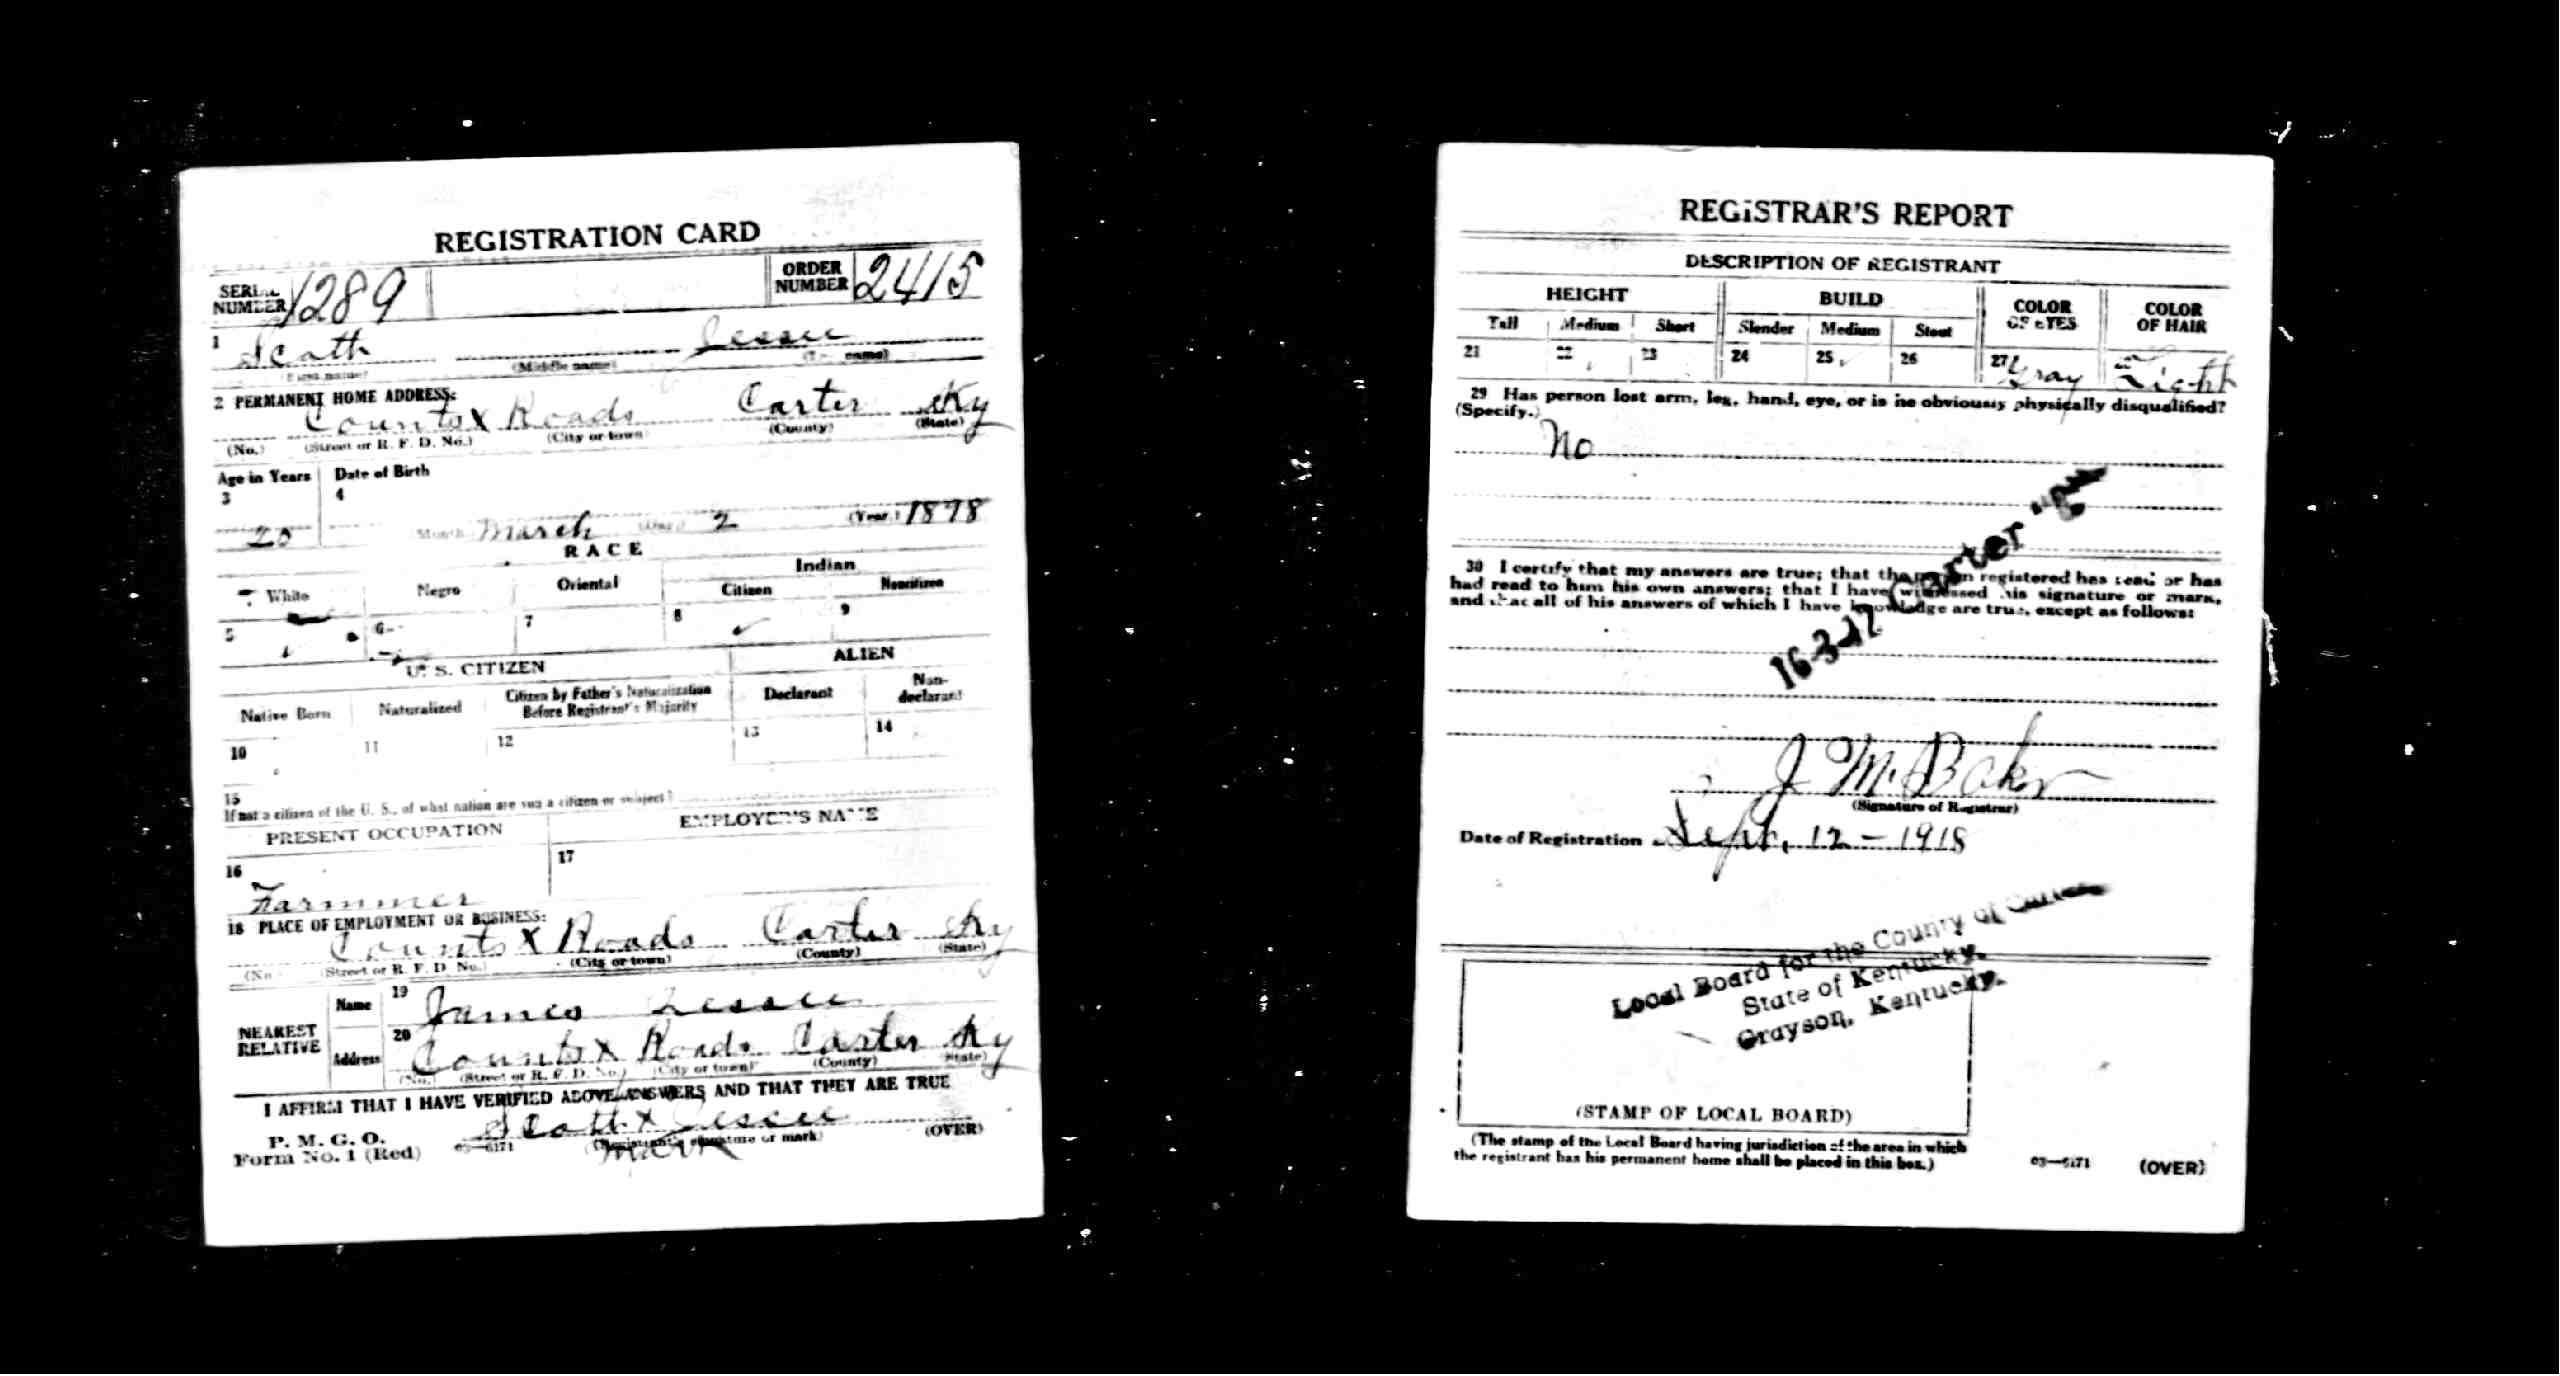 REGISTRATION CARD
SERIAL NUMBER 1289 ORDER NUMBER 2415
1 Scoth Jessee
(First name) (Middle name) (Last name)
2 PERMANENT HOME ADDRESS:
Counts X Roads Carter Ky
(No.) (Street or R. F. D. No.) (City or town) (County) (State)
Age in Years Date of Birth
3 4
20 Month March (Day) 2 (Year) 1898
RACE
White Negro Oriental Indian
Citizen Noncitizen
5 6 7 8 9
U. S. CITIZEN ALIEN
Native Born Naturalized Citizen by Father's Naturalization Before Registrant's Majority Declarant Non-declarant
10 11 12 13 14
15
If not a citizen of the U. S., of what nation are you a citizen or subject?
PRESENT OCCUPATION EMPLOYER'S NAME
16 17
Farmmer
18 PLACE OF EMPLOYMENT OR BUSINESS:
Counts X Roads Carter Ky
(No.) (Street or R. F. D. No.) (City or town) (County) (State)
NEAREST RELATIVE Name 19 James Jessee
Address 20 Counts X Roads Carter Ky
(No.) (Street or R. F. D. No.) (City or town) (County) (State)
I AFFIRM THAT I HAVE VERIFIED ABOVE ANSWERS AND THAT THEY ARE TRUE
P. M. G. O.
Form No. 1 (Red) 03—6171 Scoth X Jessee
(Registrant's signature or mark) (OVER)
mark
REGISTRAR'S REPORT
DESCRIPTION OF REGISTRANT
HEIGHT BUILD COLOR OF EYES COLOR OF HAIR
Tall Medium Short Slender Medium Stout
21 22 23 24 25 26 27 Gray 28 Light
29 Has person lost arm, leg, hand, eye, or is he obviously physically disqualified?
(Specify.)
No
30 I certify that my answers are true; that the person registered has read or has
had read to him his own answers; that I have witnessed his signature or mark,
and that all of his answers of which I have knowledge are true, except as follows:
16-3-17 Carter
J M. Baker
(Signature of Registrar)
Date of Registration Sept. 12 - 1918
Local Board for the County of Carter
State of Kentucky.
Grayson, Kentucky.
(STAMP OF LOCAL BOARD)
(The stamp of the Local Board having jurisdiction of the area in which
the registrant has his permanent home shall be placed in this box.)
03—6171 (OVER)